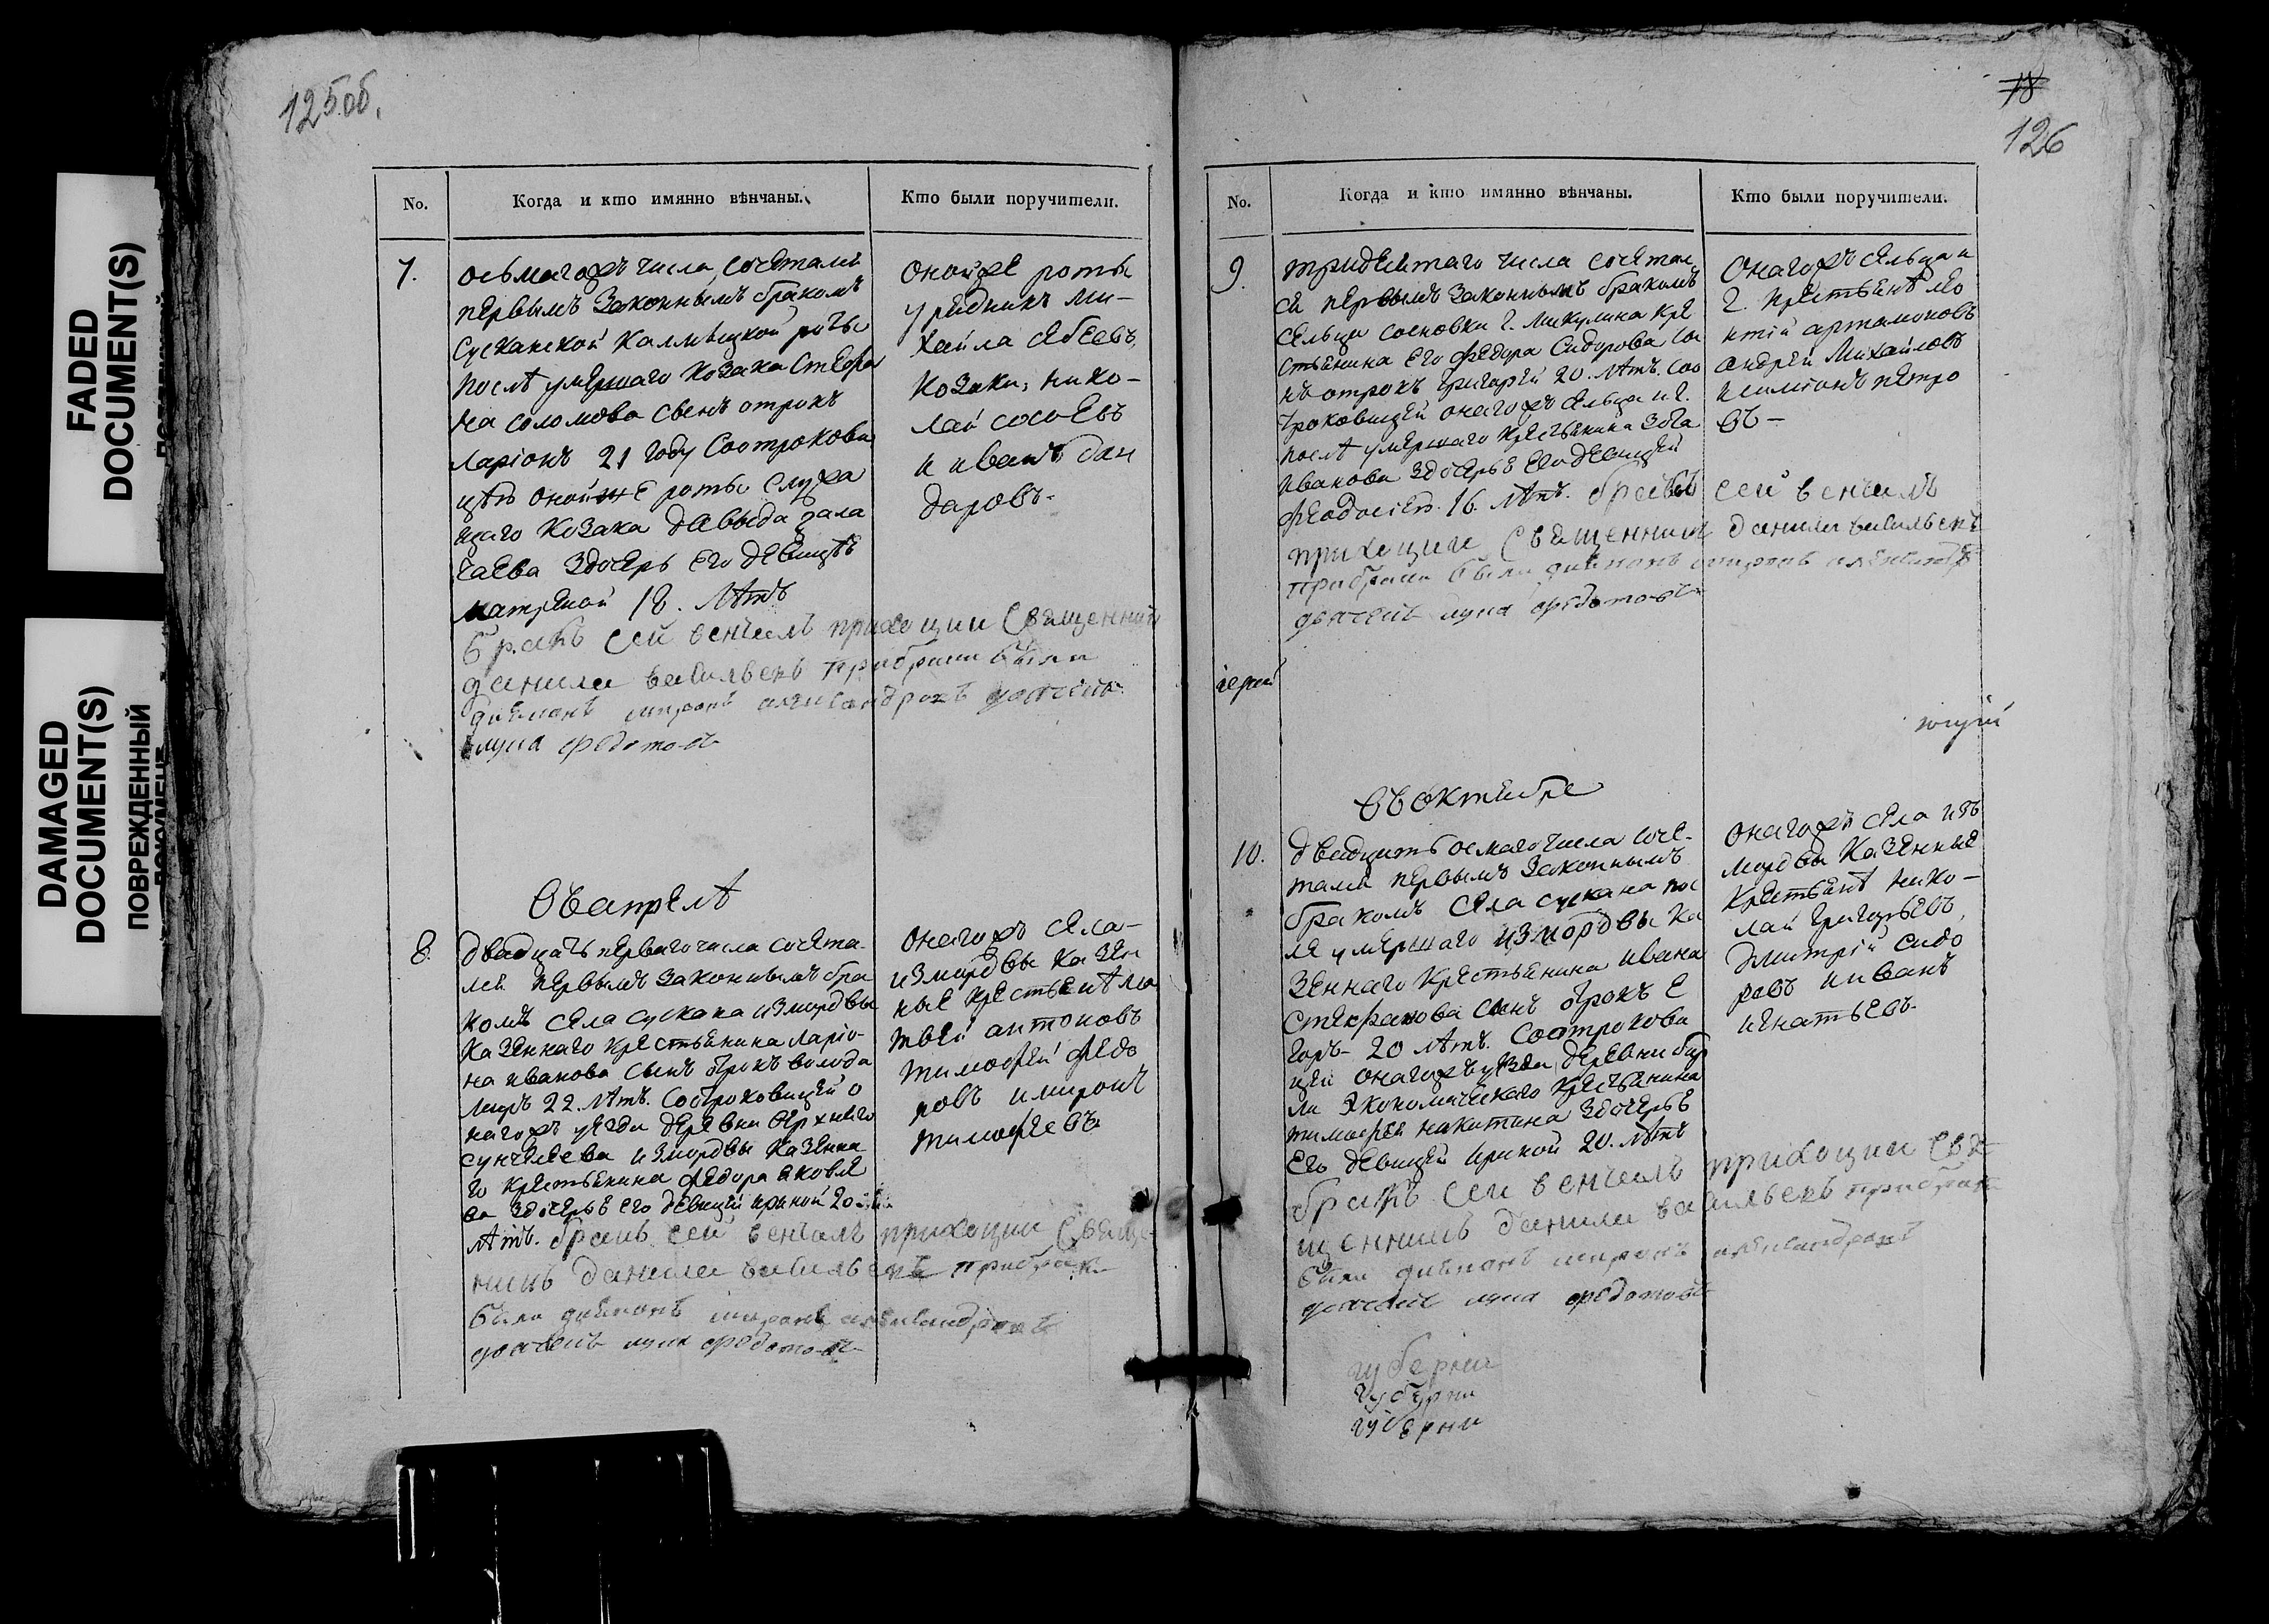 FADED
DOCUMENT(S)
DAMAGED
DOCUMENT(S)
ПОВРЕЖДЕННЫЙ
125об.
No.
Когда и кто имянно вѣнчаны.
Кто были поручители.
7.
осьмагожъ числа сочетались
первымъ законнымъ бракомъ
Сусканской Калмыцкой роты
послѣ умершаго козака Стефа
на соломова сынъ отрокъ
ларіонъ 21 году Соотрокови
цѣю онойже роты служа
щаго козака давыда
чаева здочерь его девицѣю
матреной 18. лѣтъ
бракъ сей венчалъ приходции Священникъ
данила васильевъ прибраки были
диячокъ миронъ александровъ
лука федотовъ
онойже роты
урядникъ Ми-
хайла
козаки, нико-
лай
и иванъ
даровъ.
Въ апрелѣ
8.
двадцать перваго числа сочета-
лей первымъ законнымъ бра
комъ села сускана измордвы
казеннаго крестьянина ларіо-
на иванова сынъ отрокъ волода
меръ 22. лѣтъ. Соотроковицей о
нагожъ уезда деревни верхняго
сунчелеева измордвы казенна
го крестьянина федора яковле
ва здочерье его девицей ириной 20
лѣтъ. бракъ сей венчалъ приходции Свяще
никъ данила васильевъ прибраки
были диячокъ миронъ александровъ
лука федотовъ
онагожъ села-
измордвы казен
ные крестьянѣ ма
твей антоновъ
тимофей федо
ровъ имиронъ
тимофеевъ
18
126
No.
Когда и кто имянно вѣнчаны.
Кто были поручители.
9.
тридевятаго числа сочетал
ся первымъ законнымъ бракомъ
сельца сосновки г. микулина кре
стьянина его федора Сидорова сы
нъ отрокъ григорей 20. лѣтъ. соо
троковицей онагожъ сельца и г.
послѣ умершаго крестьянина
иванова здочерье его девицей
феодосіею. 16. лѣтъ. бракъ сей венчалъ
приходции Священникъ данила васильевъ
прибраки были диячокъ миронъ александровъ
лука федотовъ
Онагожъ сельца и
г. крестьянѣ ле
нтій артамоновъ
андрей Михайловъ
исимионъ петро
въ-
іерей
Въ октябре
10.
двадцать осмаго числа соче-
тали первымъ законнымъ
бракомъ села сускана пос
ле умершаго измордвы ка
зеннаго крестьянина ивана
стефанова сынъ отрокъ е
горъ- 20 лѣтъ. Соотрокови
цей онагожъ уезда деревни бир
ли экономическаго крестьянина
тимофея никитина здочерье
его девицей ириной 20. лѣтъ
бракъ сей венчалъ приходции Свя
щенникъ данила васильевъ прибраки
были диячокъ миронъ александровъ
лука федотовъ
онагожъ села изъ
мордвы казенные
крестьянѣ нико-
лай григорьевъ,
дмитрій сидо
ровъ и иванъ
игнатьевъ.
губерни
губерни
губерни